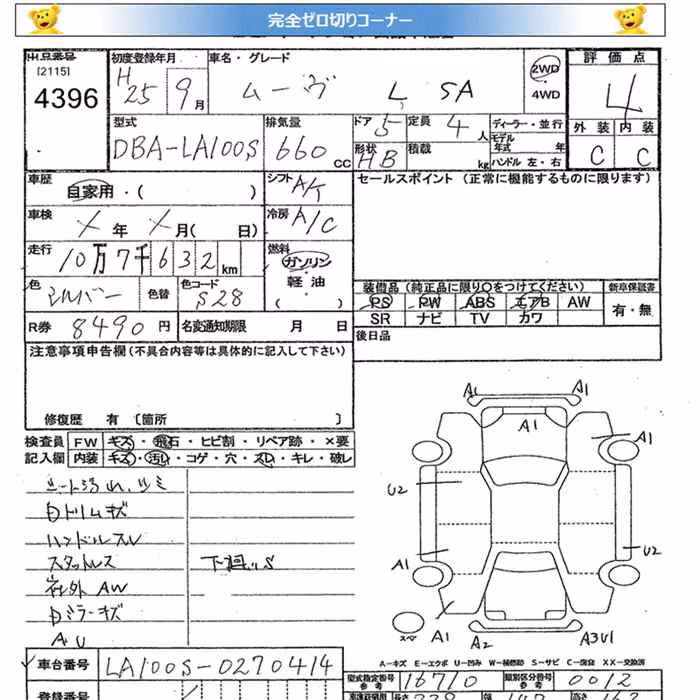 完全ゼロ切りコーナー
出品番号 初度登録年月 車名・グレード 評価点
[2115] H 2WD
4396 25 9月 ムーヴ L SA 4WD 4
型式 排気量 ドア 5 定員 4人 ディーラー・並行 外装 内装
モデル年式 年
DBA-LA100S 660 CC 形状 HB 積載 kg ハンドル 左・右 C C
車歴 シフト A/T セールスポイント (正常に機能するものに限ります)
自家用・( )
車検 冷房 A/C
X年 X月( 日)
走行 燃料
10万7千632km ガソリン・軽油
色 色替 色コード 装備品 (純正品に限り○をつけてください) 新車保証書
シルバー S28 PS PW ABS エアB AW 有・無
R券 8490円 名変通知期限 月 日 SR ナビ TV カワ
後日品
注意事項申告欄 (不具合内容等は具体的に記入して下さい)
修復歴 有 〔箇所 〕
検査員 FW キズ・飛石・ヒビ割・リペア跡・×要
記入欄 内装 キズ・汚れ・コゲ・穴・スレ・キレ・破レ
シート汚れ、シミ
内トリムキズ
ハンドルスレ
スタットレス 下廻りS
社外 AW
内ミラーキズ
AU
A1 A1
A1 A1
U2
A1 U2
スペ A1 A2 A3U1
A－キズ E－エクボ U－凹み W－補修跡 S－サビ C－腐食 XX－交換済
車台番号 LA100S-0270414 型式指定番号 参考 16710 類別区分番号 参考 0012
登録番号